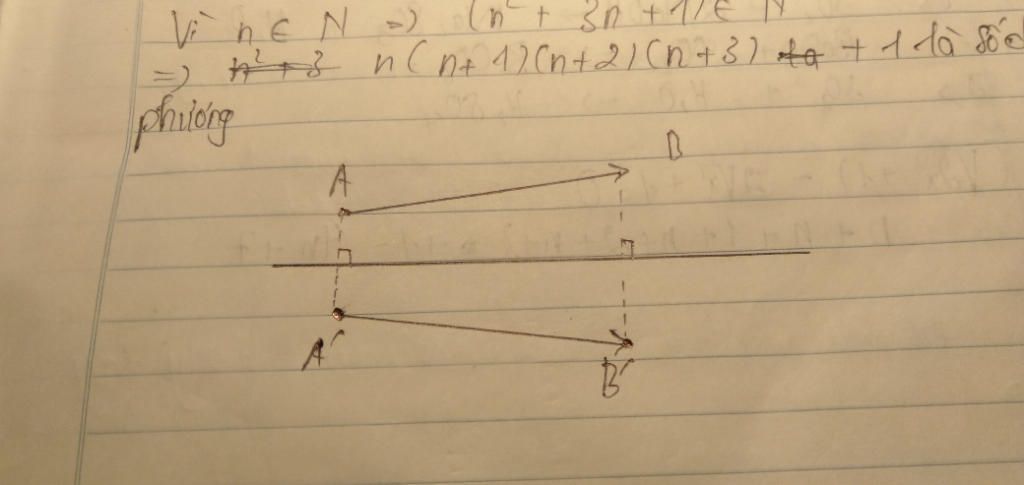 Vì n ∈ N => (n² + 3n + 1) ∈ N
=> n² + 3 n(n+1)(n+2)(n+3) + 1 là số c
phương
A
B
A'
B'